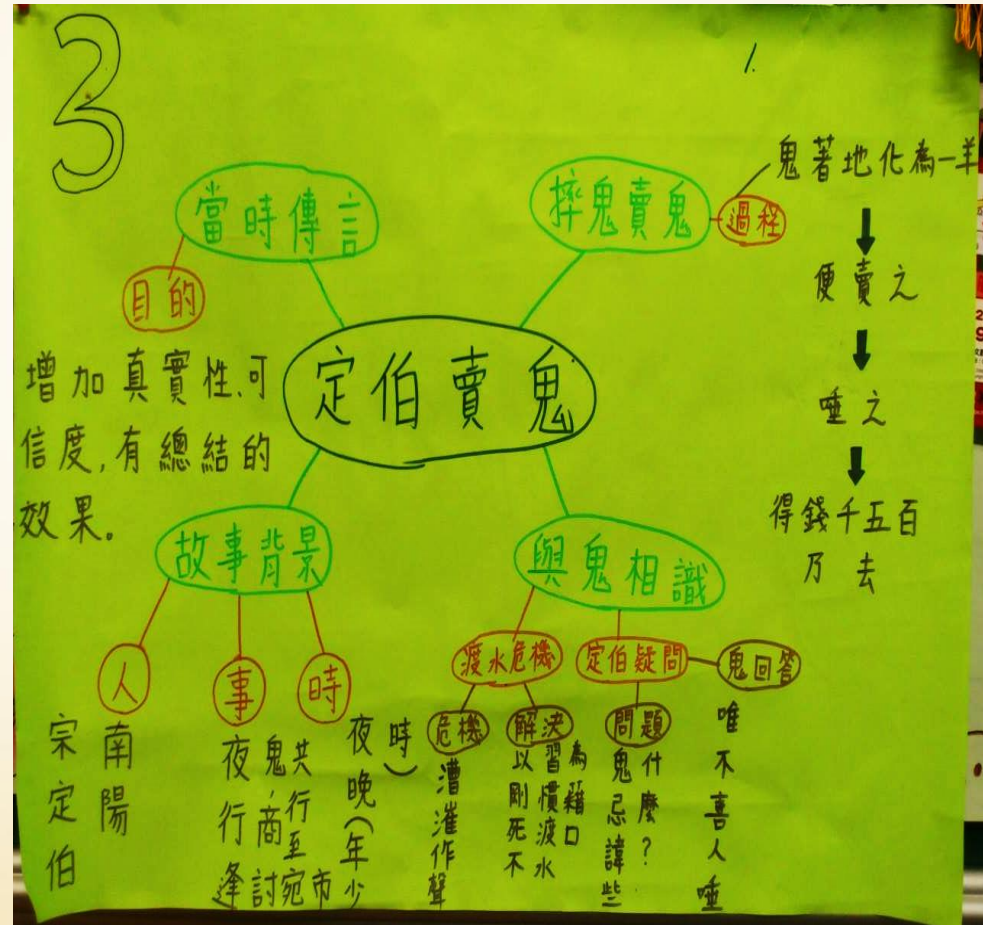 3
1.
當時傳言
目的
增加真實性、可
信度,有總結的
效果。
摔鬼賣鬼
過程
鬼著地化為一羊
便賣之
唾之
得錢千五百
乃去
定伯賣鬼
故事背景
人
南陽
宗定伯
事
夜行逢
鬼,商討
共行至宛市
時
夜晚(年少
時)
與鬼相識
渡水危機
危機
漕漼作聲
解決
以剛死不
習慣渡水
為籍口
定伯疑問
問題
鬼忌諱些
什麼?
鬼回答
唯不喜人唾